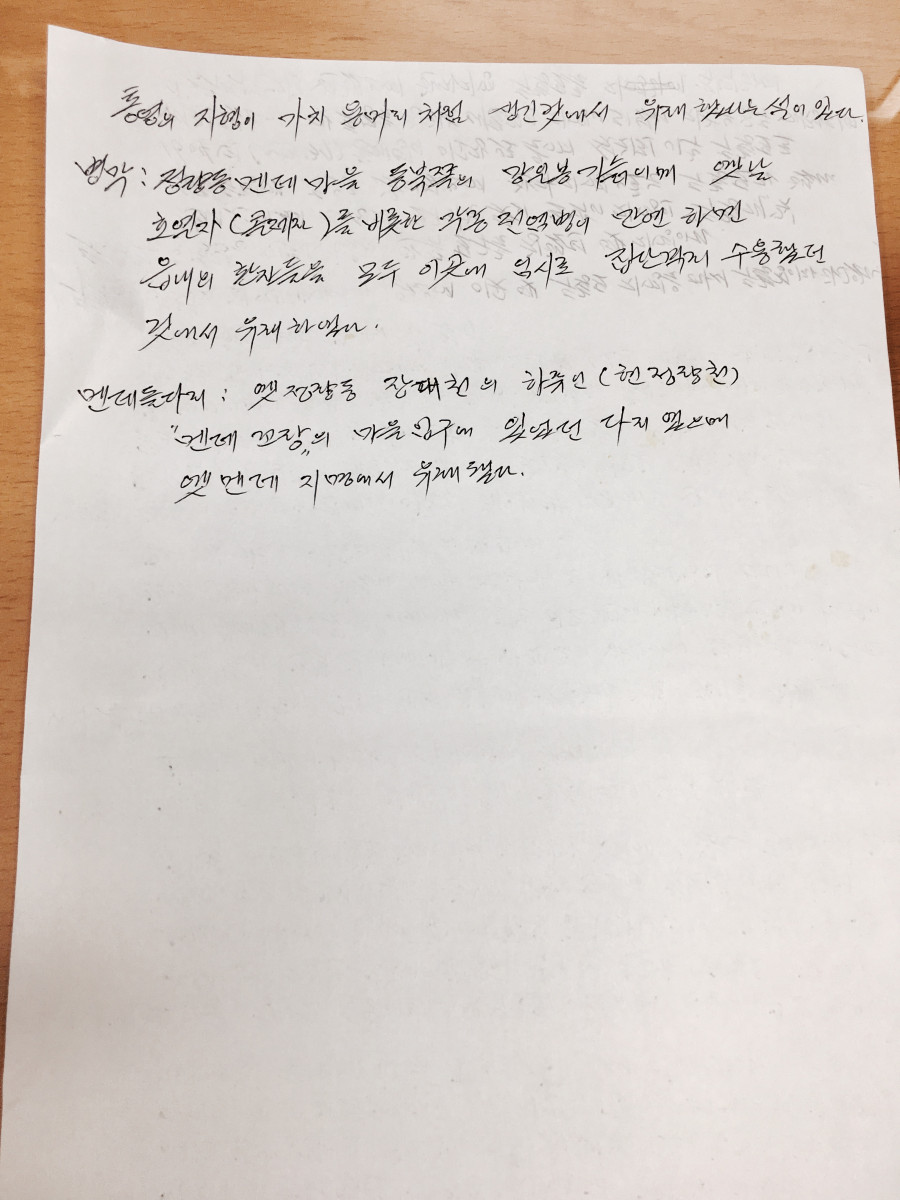 통영의 지형이 마치 응머리 처럼 생긴것에서 유래 했다는 설이 있다.
병막 : 정량동 멘데마을 동북쪽의 망일봉 기슭이며 옛날
호열자(콜레라)를 비롯한 각종 전염병이 만연 하면
읍내의 환자들을 모두 이곳에 임시로 집단격리 수용했던
것에서 유래하였다.
멘데들다리 : 옛 정량동 장대천의 하류인 (현 정량천)
"멘데 꼬랑"의 마을입구에 있었던 다리 였으며
옛 멘데 지명에서 유래됐다.